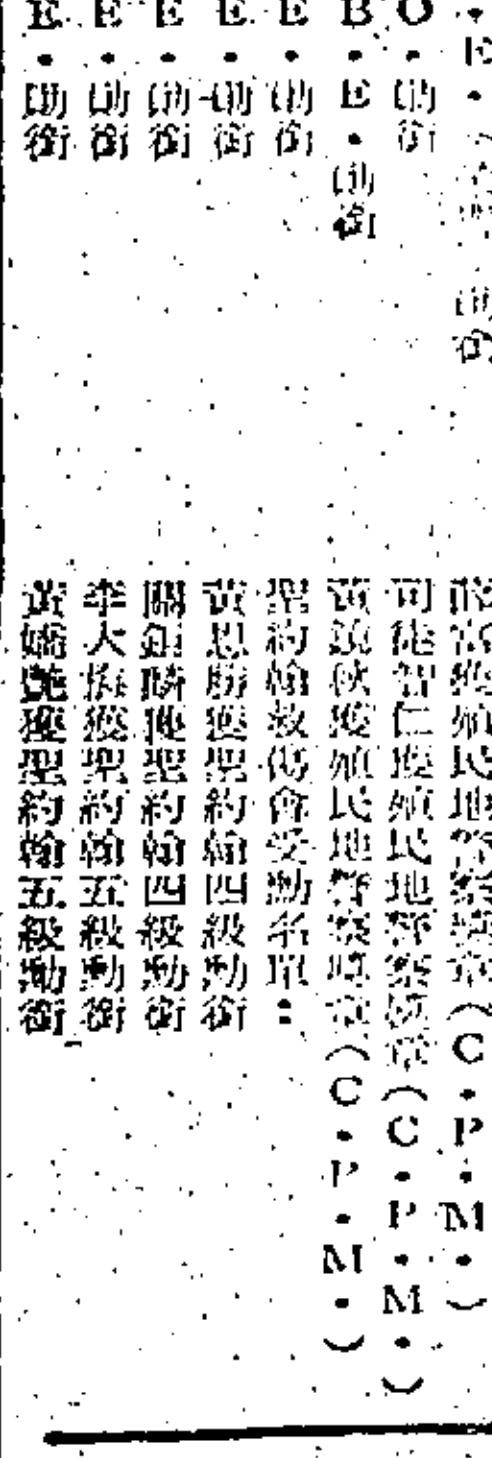 E・勳衔
O・勳衔
B・E・勳衔
E・勳衔
E・勳衔
E・勳衔
E・勳衔
E・勳衔
獲殖民地警察獎章(C・P・M・)
司徒智仁獲殖民地警察獎章(C・P・M・)
黃鏡秋獲殖民地警察獎章(C・P・M・)
聖約翰救傷會受勳名單:
黃恩勝獲聖約翰四級勳銜
關 獲聖約翰四級勳銜
李大 獲聖約翰五級勳銜
黃嬌艷獲聖約翰五級勳銜